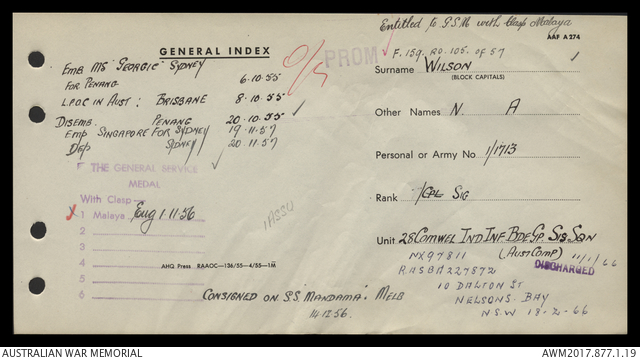 Entitled to G.S.M with Clasp Malaya
AAF A 274
GENERAL INDEX
PROM
F. 159. RO. 105. of 57
EMB MS "GEORGIC" SYDNEY
FOR PENANG 6.10.55
L.POC IN AUST: BRISBANE 8.10.55
DISEMB. PENANG 20.10.55
EMB SINGAPORE FOR SYDNEY 19.11.57
DEP SYDNEY 20.11.57
THE GENERAL SERVICE
MEDAL
With Clasp
X 1 Malaya Eng 1.11.56
2
3
4
5
6
AHQ Press RAAOC—136/55—4/55—1M
CONSIGNED ON S.S. "MANDAMA" MELB
14.12.56.
Surname WILSON
(BLOCK CAPITALS)
Other Names N. A
Personal or Army No 1/1713
Rank CPL SIG
Unit 28 COMWEL IND INF BDE GP SIG SQN
(AUST COMP) 11/1/66
NX97811
DISCHARGED
RASBM227872
10 DALTON ST
NELSONS BAY
NSW 18-2-66
AUSTRALIAN WAR MEMORIAL
AWM2017.877.1.19